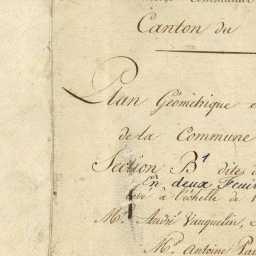 Canton du
Plan Géométrique
de la Commune
Section B1 dites
En deux Feuil
levé à l'échelle de 1
Mr. André Vauquelin,
Mr. Antoine